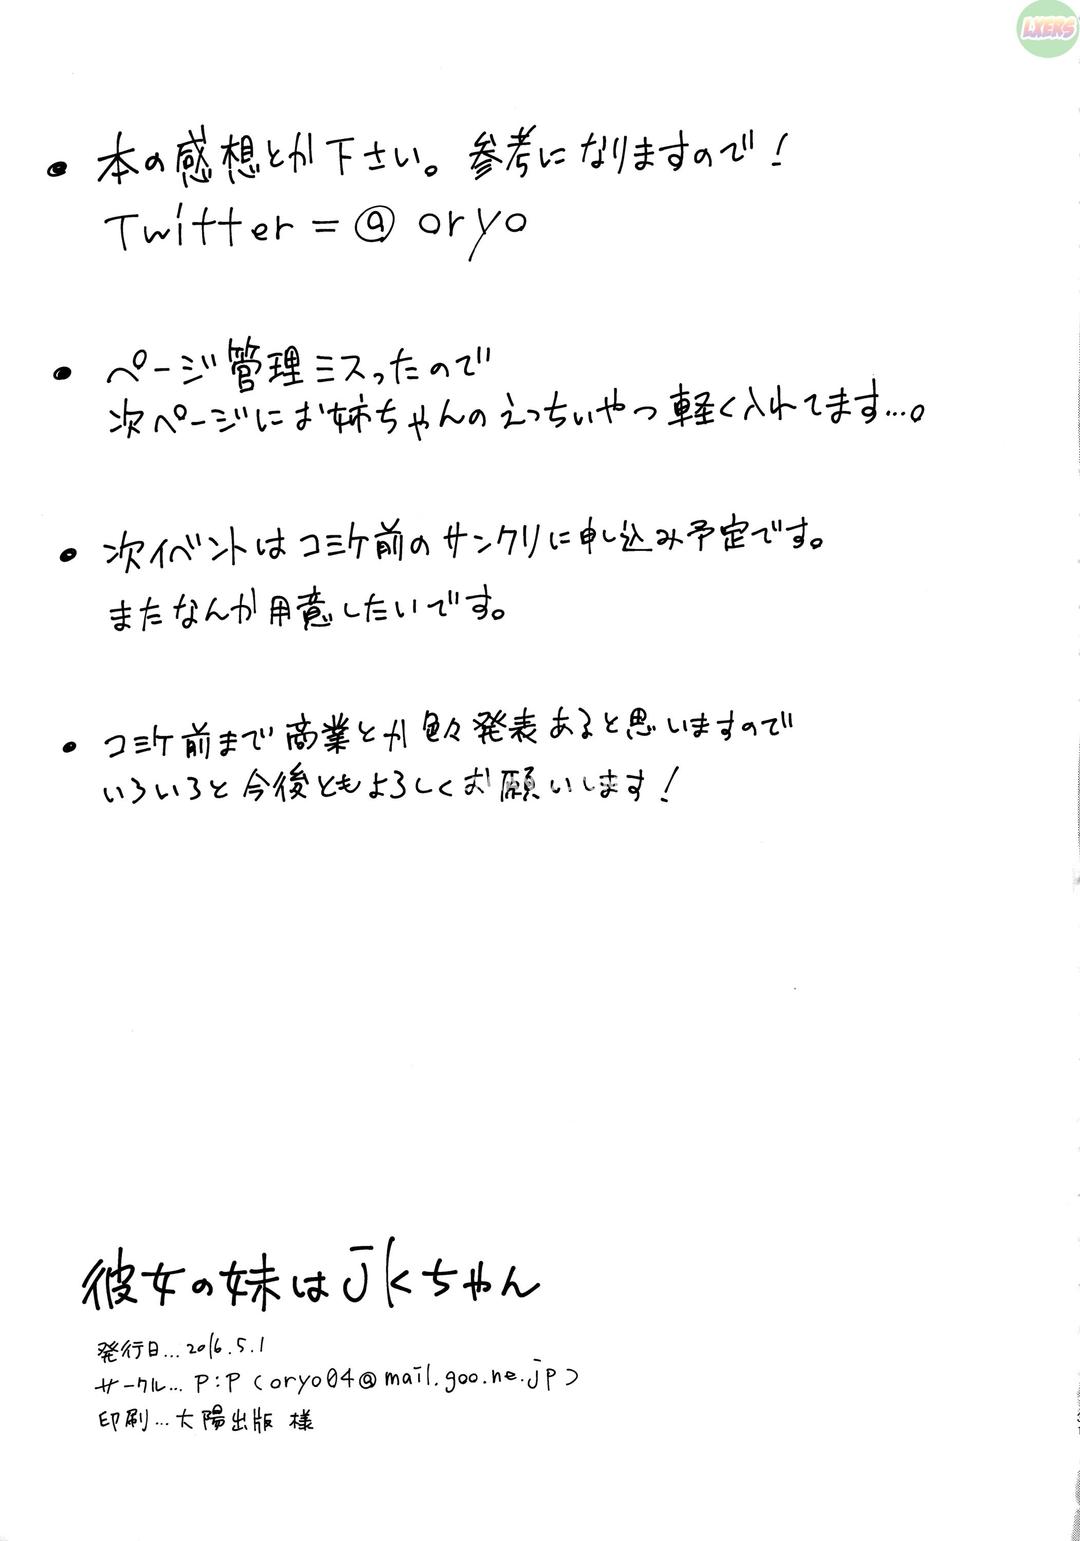 LXERS
• 本の感想とか下さい。参考になりますので！
Twitter = @ oryo
• ページ管理ミスったので
次ページにお姉ちゃんのえっちぃやつ軽く入れてます…。
• 次イベントはコミケ前のサンクリに申し込み予定です。
またなんか用意したいです。
• コミケ前まで商業とか色々発表あると思いますので
いろいろと今後ともよろしくお願いします！
彼女の妹はjkちゃん
発行日…2016.5.1
サークル… P:P (oryo04@mail.goo.ne.jp)
印刷…大陽出版 様